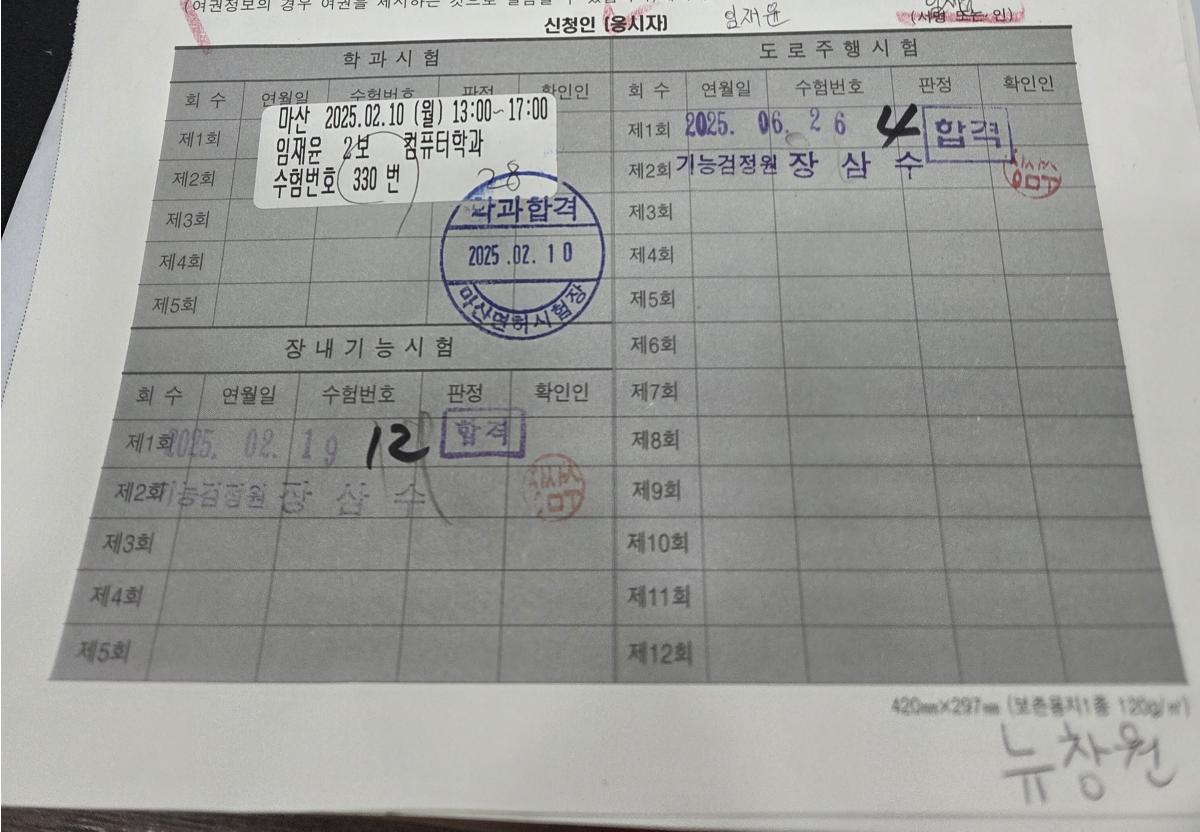 (여권정보의 경우 여권을 제시하는 것으로 갈음할 수 있
신청인 (응시자) 임재윤 (서명 또는 인)
학과시험
회 수 연월일 수험번호 판정 확인인
마산 2025.02.10 (월) 13:00~17:00
임재윤 2보 컴퓨터학과
수험번호 330 번
28
제1회
제2회
제3회
제4회
제5회
학과합격
2025.02.10
마산면허시험장
장내기능시험
회 수 연월일 수험번호 판정 확인인
제1회 2025. 02. 19 12 합격
제2회 기능검정원 장 삼 수
제3회
제4회
제5회
도로주행시험
회 수 연월일 수험번호 판정 확인인
제1회 2025. 06. 26 4 합격
제2회 기능검정원 장 삼 수
제3회
제4회
제5회
제6회
제7회
제8회
제9회
제10회
제11회
제12회
420㎜×297㎜ (보존용지1종 120g/㎡)
뉴창원